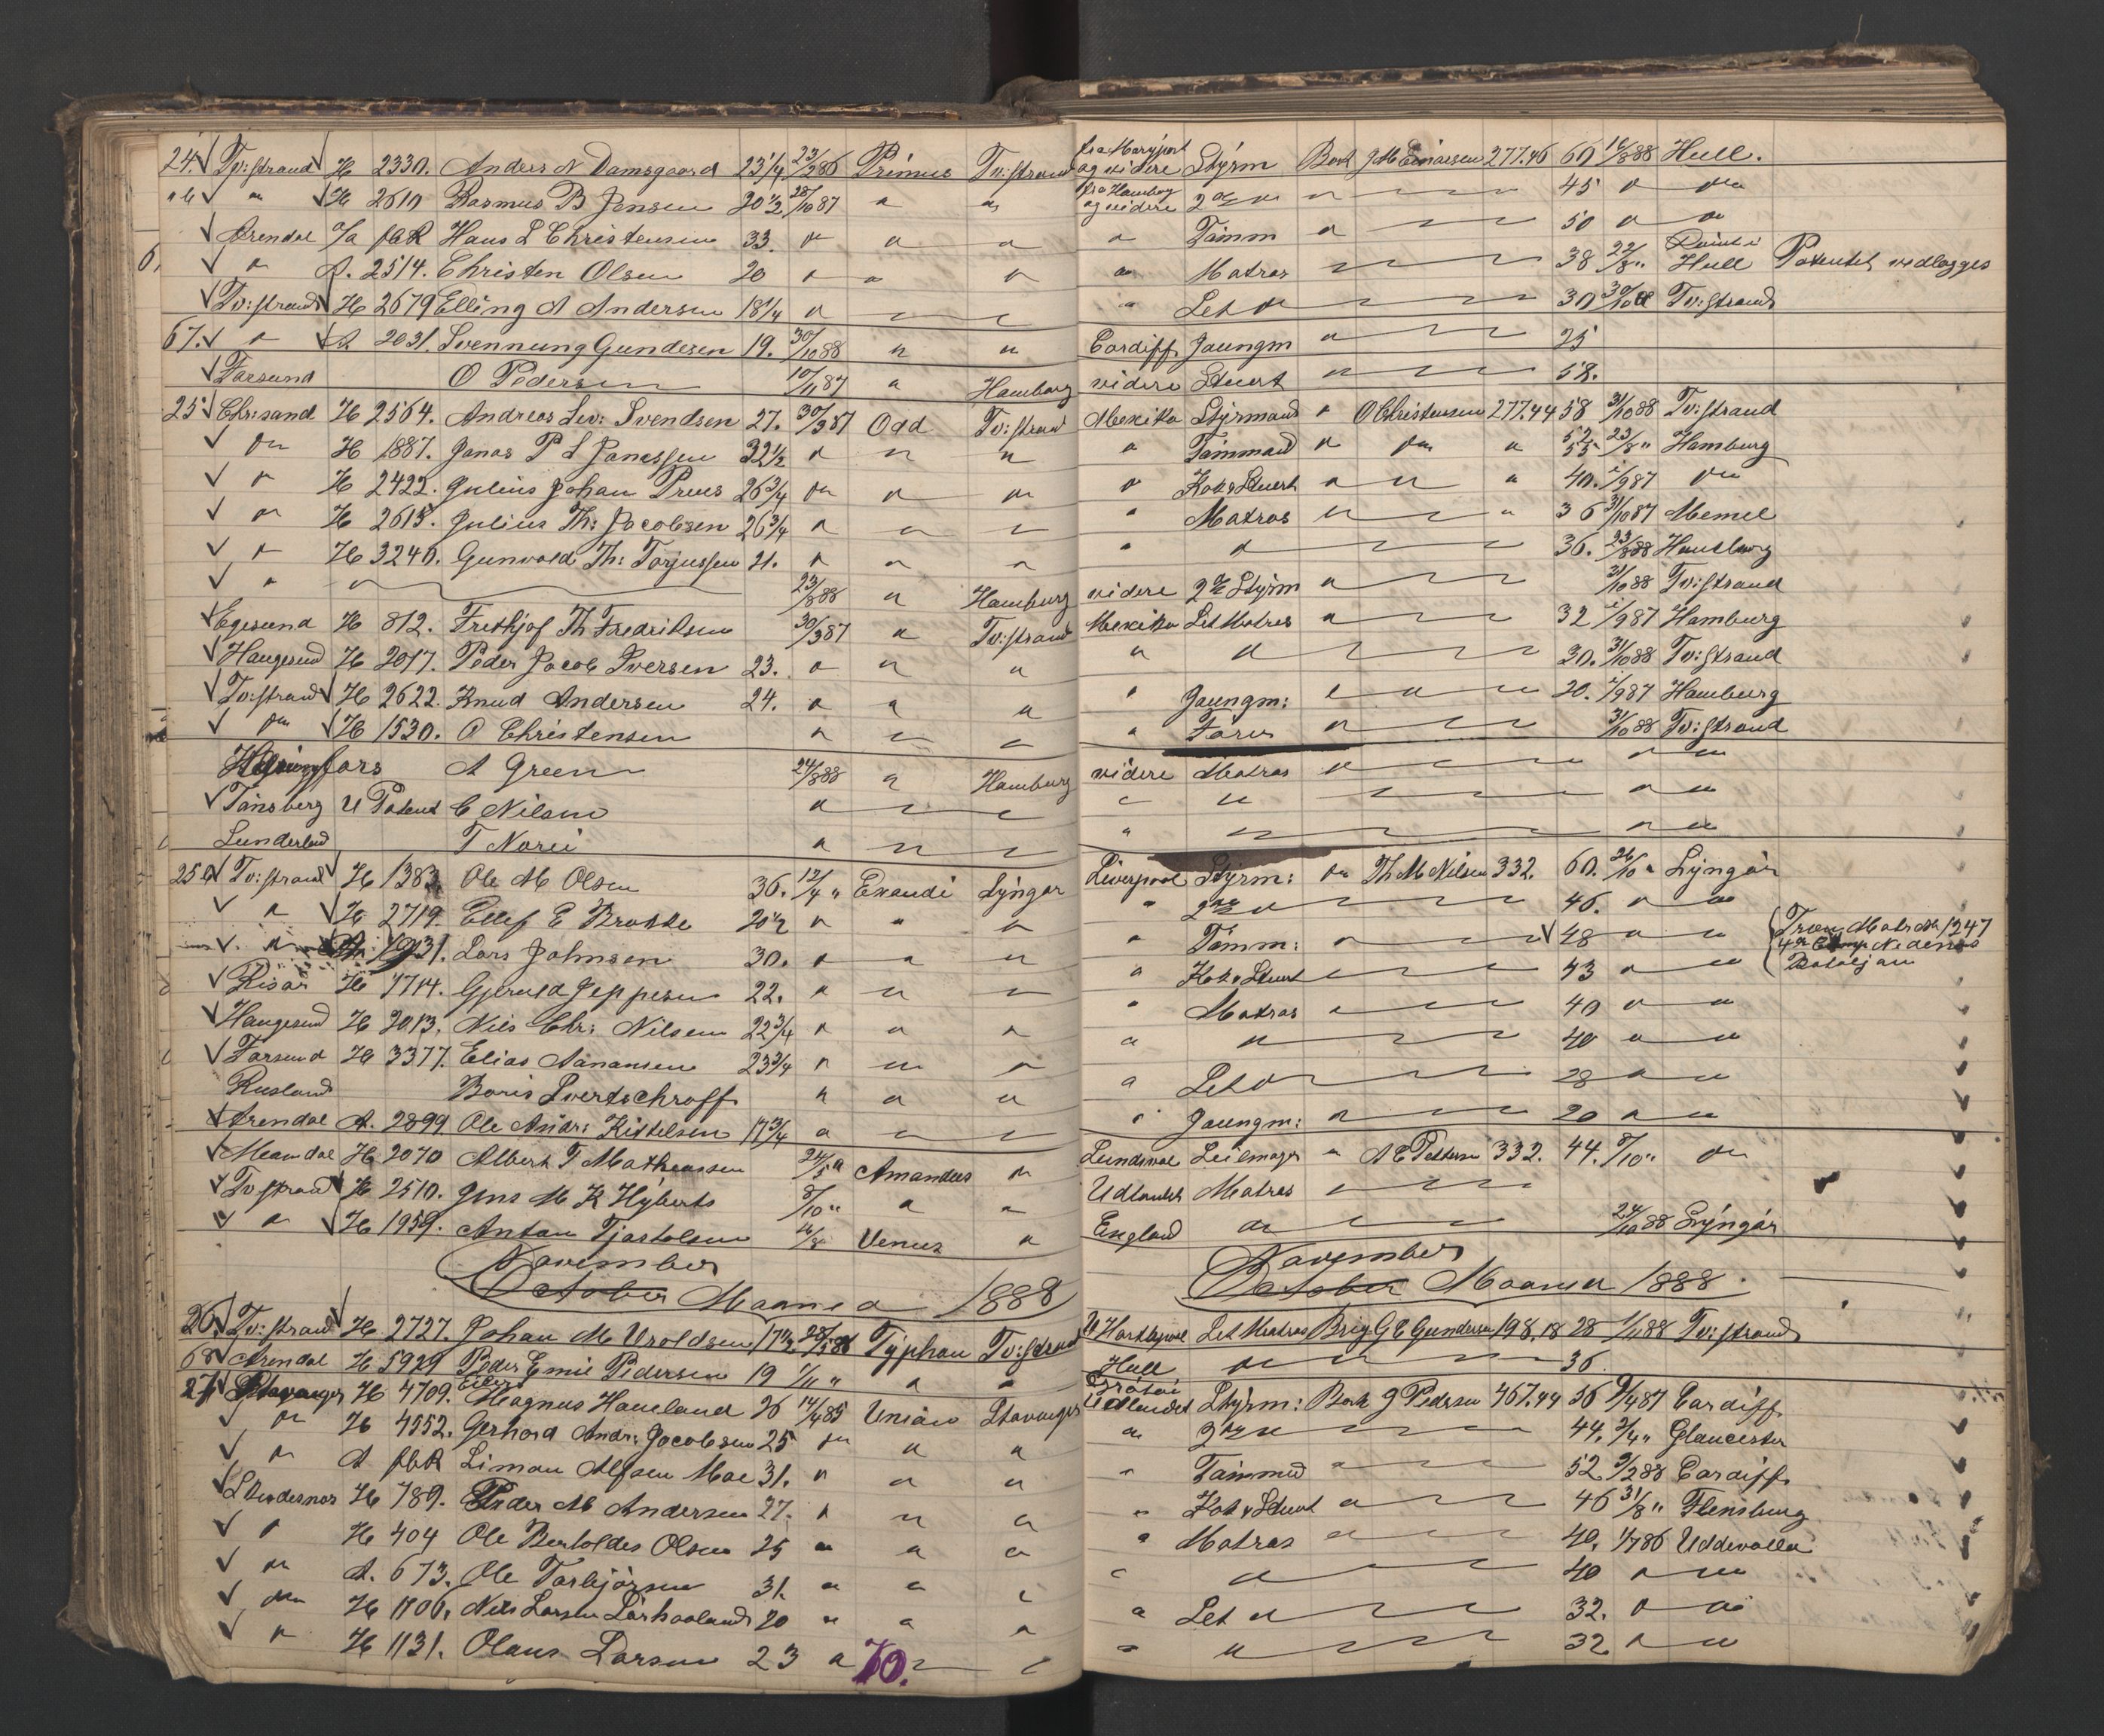 24. Tv:strand H 2330. Anders N Damsgaard 23 1/4 23/3 86 Primus Tv:strand fra Maryport og videre Styrm Bark J M Einarsen 277.46 60 16/8 88 Hull.
" H 2610 Rasmus B Jensen 20 1/2 28/10 87 " " fra Hamborg og videre 2den " " 45 " "
Arendal Hans L Christensen 33. " " " " Tömm " 50 " "
" A. 2514. Christen Olsen 20 " " " " Matros 38 22/8 " Hull Patentet vedlægges
Tv:strand H 2679 Elling A Andersen 18 1/4 " Let " 30 30/10 88 Tv:strand
67. " A 2031. Svennung Gundersen 19. 30/10 88 " " Cardiff Joungm " 25
Farsund O Pedersen 10/11 87 " Hamborg videre Stuert " 58.
25 Chr:sand H 2564. Andreas Sev: Svendsen 27. 30/3 87 Odd Tv:strand Mexiko Styrmand " O Christensen 277.44 58 31/10 88 Tv:strand
" H 1887. Jonas P S Jonassen 32 1/2 " " " " Tömmand " " " 52 55 23/8 " Hamburg
" H 2422. Julius Johan Preus 26 3/4 " " " " Kok & Stuert " " " 40. 2/9 87 "
" H 2615. Julius Th: Jacobsen 26 3/4 " " " Matros " " 36 31/10 87 Memel
" H 3240. Gunvald Th: Torjussen 21. " " " " " 36. 23/8 88 Hamburg
" " 23/8 88 " Hamburg videre 2den Styrm " 31/10 88 Tv:strand
Egesund H 812. Frithjof Th Fredriksen 30/3 87 " Tv:strand Mexiko Let Matros " 32 2/9 87 Hamburg
Haugesund H 2017. Peder Jacob Iversen 23. " " " " " 30. 31/10 88 Tv:strand
Tv:strand H 2622. Knud Andersen 24. " " " " Joungm: " " 20. 2/9 87 Hamburg
" H 1530. O Christensen " " " " Förer " 31/10 88 Tv:strand
A Green 24/8 88 " Hamburg videre Matros " " "
Tönsberg U Patent C Nilsen " " " " " " "
Sunderland T " " " " " " "
25b Tv:strand H 1383. Ole M Olsen 36. 12/4 " Exaudi Lyngør Liverpool Styrm: " Th M Nilsen 332. 60. 26/10 " Lyngör
" H 2719. Ellef E Brokke 20 1/2 " " " " 2den " 46. " "
" 1931. Lars Johnsen 30. " " " " Tömm: " 48 " " Tron: Matr No 1247 4de Comp Nedenes Bataljon
Risör H 7714. Gjeruld Jeppesen 22. " " " " Kok & Stuert 43 " "
Haugesund H 2013. Nils Chr: Nilsen 22 3/4 " " " " Matros " 40 " "
Farsund H 3377. Elias Aanansen 23 3/4 " " " " " 40 " "
Rusland Boris Svertschroff " " " " Let " 28 " "
Arendal A. 2899 Ole Andr: Kittelsen 17 3/4 " " " " Joungm: " 20 " "
Mandal H 2070 Albert T Matheussen 24/5 " Amandus " Sundsval Seilmager " A E Pettersen 332. 44. 8/10 " "
Tv strand H 2510. Jens M K Hyberts 8/10 " " " Udlandet Matros "
" H 1959. Anton Tjostolsen 16/8 Venus " England " 24/10 88 Lyngör
November October Maaned 1888
November October Maaned 1888.
26. Tv:strand H 2727. Johan M Uroldsen 17 1/2. 28/3 88 Typhon Tv:strand V Hartlepool Let Matros Brig G E Gundersen 198,18 28 1/11 88 Tv:strand
68 Arendal H 5929 Peder Emil Pedersen 19 1/11 " " " Hull " 36
27 Stavanger H 4709. Eilert Magnus Haveland 26 14/4 85 Union Stavanger Udlandet Styrm: Bark J Pedersen 467.44 56 9/4 87 Cardiff
" H 4552. Gerhard Andr: Jacobsen 25 " " " " 2den " 44. 2/4 " Gloucester
" A Simon Alfsen Moe 31. " " " " Tömmd " 52 9/2 88 Cardiff
Svodesnæs H 789. Peder M Andersen 27. " " " " Kok & Stuert " 46 31/8 " Flensburg
" H 404 Ole Bertoldes Olsen 25 " " " " Matros " 40. 1/7 86 Uddevalla
" A. 673. Ole Torbjörsen 31. " " " " " 40 " "
" H 1706. Nils Larsen Lörhoaland 20 " " " " Let " 32. " "
" H 1131. Olaus Larsen 23 " " " " " 32 " "
70.